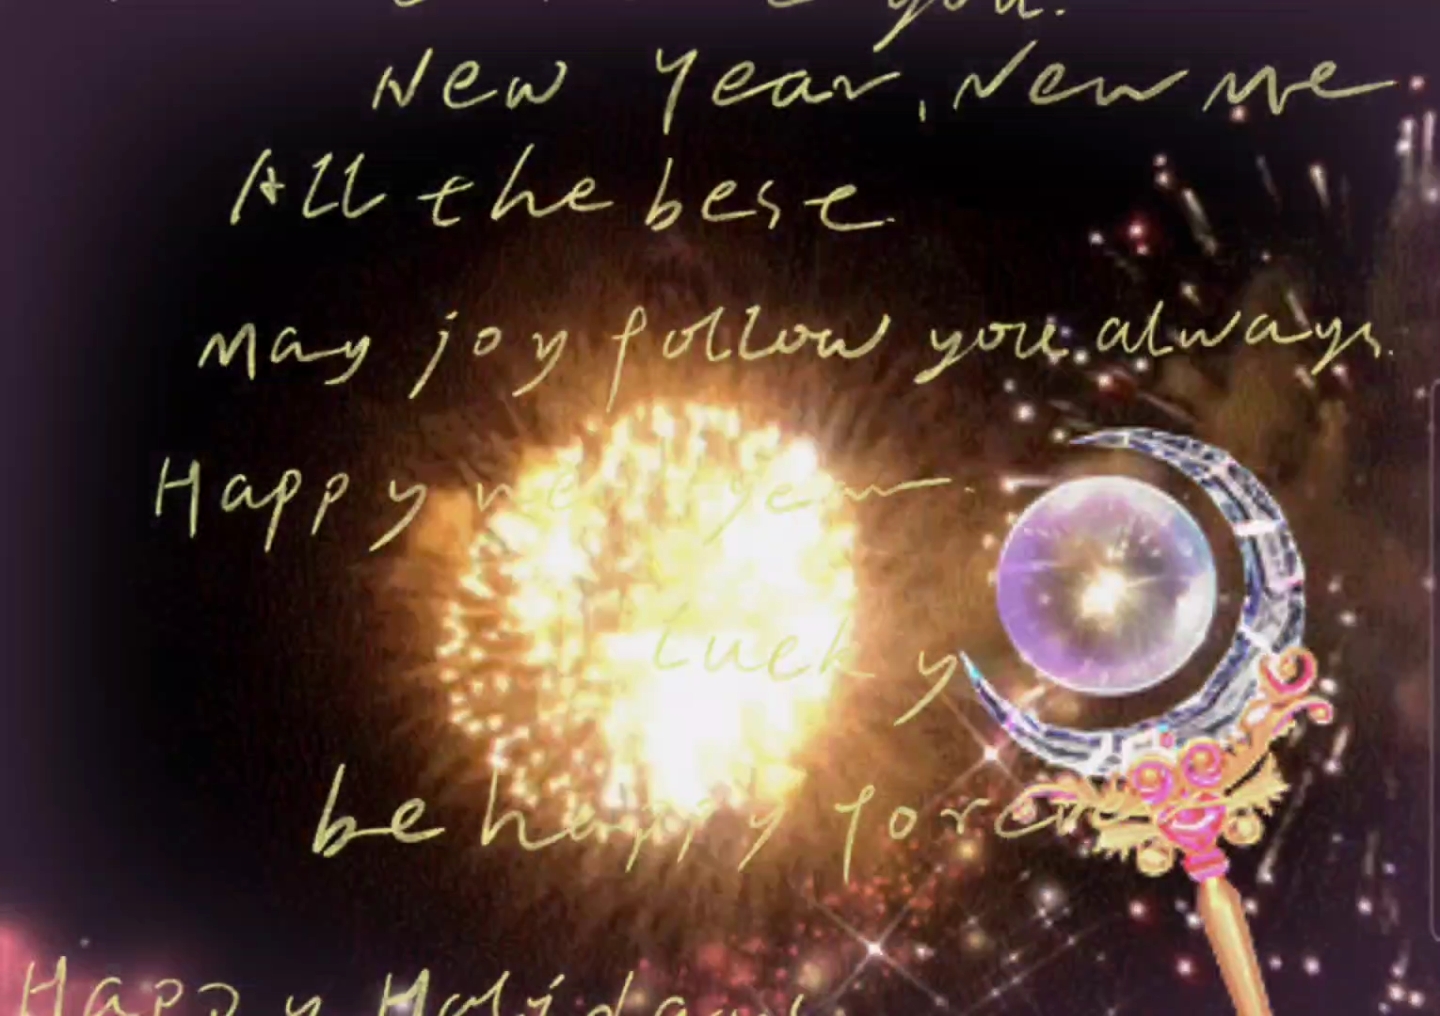 you.
New Year, New Me
All the best.
May joy follow you always.
Happy new year.
Lucky
be happy forever
Happy Holidays!